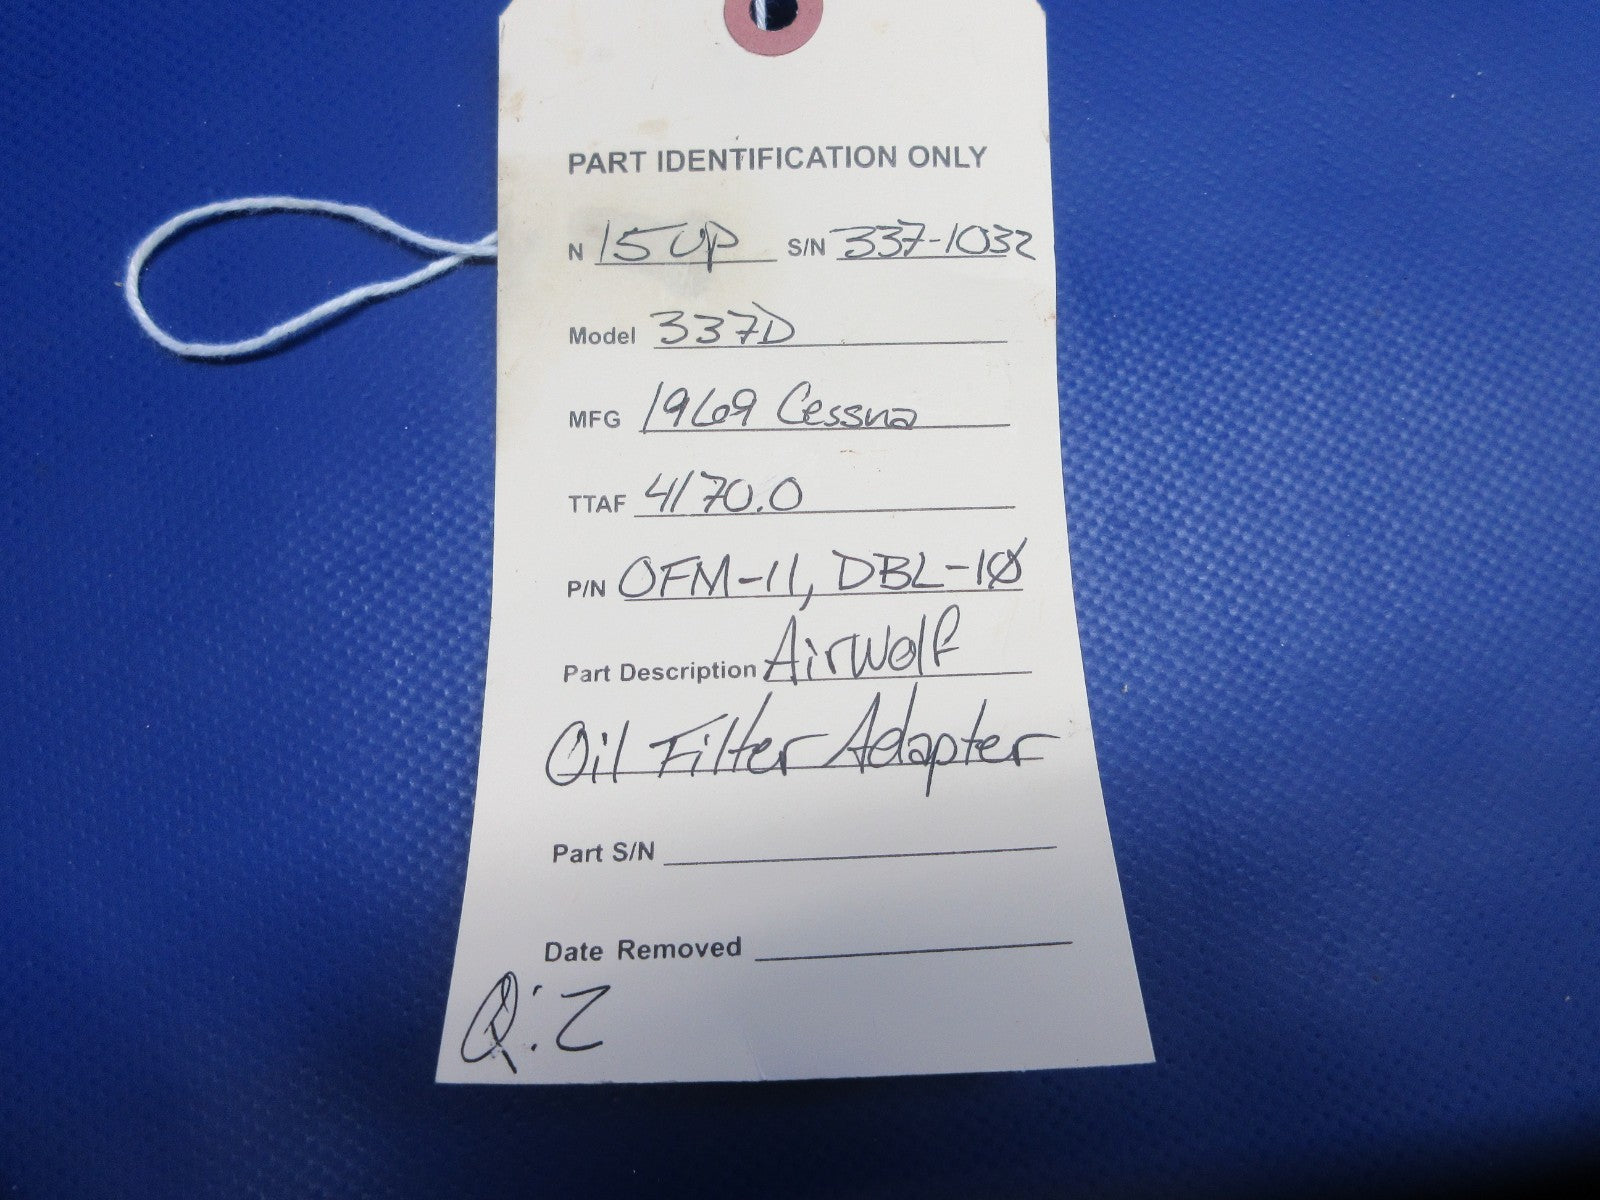 PART IDENTIFICATION ONLY
N 15UP S/N 337-1032
Model 337D
MFG 1969 Cessna
TTAF 4170.0
P/N OFM-11, DBL-10
Part Description Airwolf
Oil Filter Adapter
Part S/N
Date Removed
Q:2